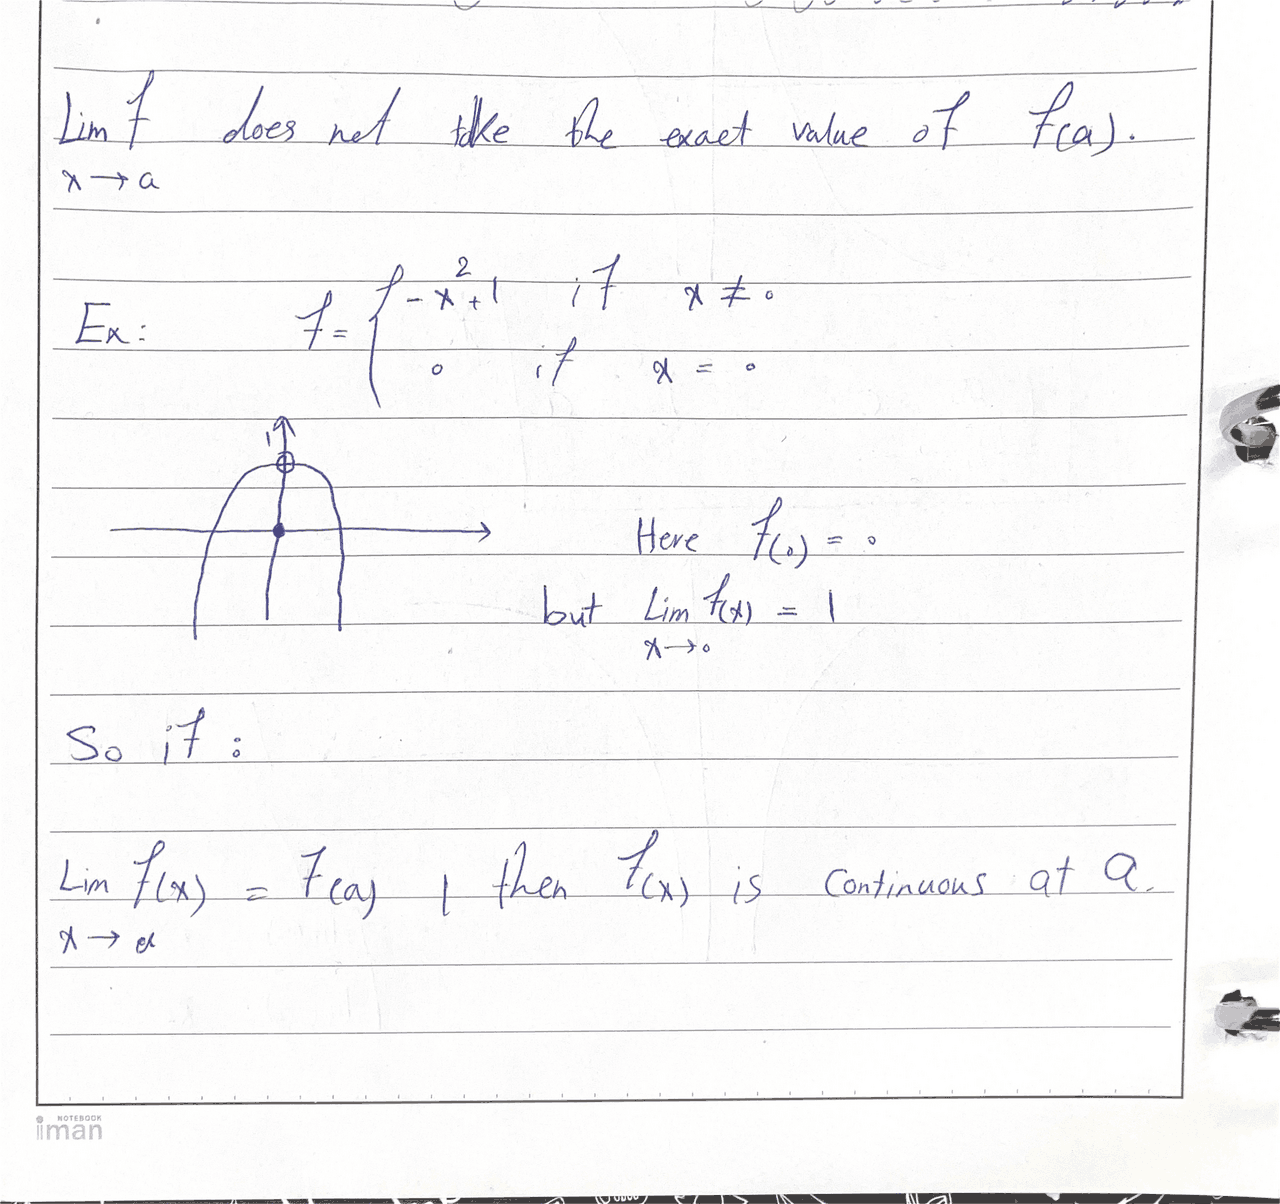 Lim f does not take the exact value of f(a).
x → a
Ex: f = { -x² + 1 if x ≠ 0
0 if x = 0
1
Here f(0) = 0
but Lim f(x) = 1
x → 0
So if :
Lim f(x) = f(a) , then f(x) is continuous at a.
x → a
NOTEBOOK
iman